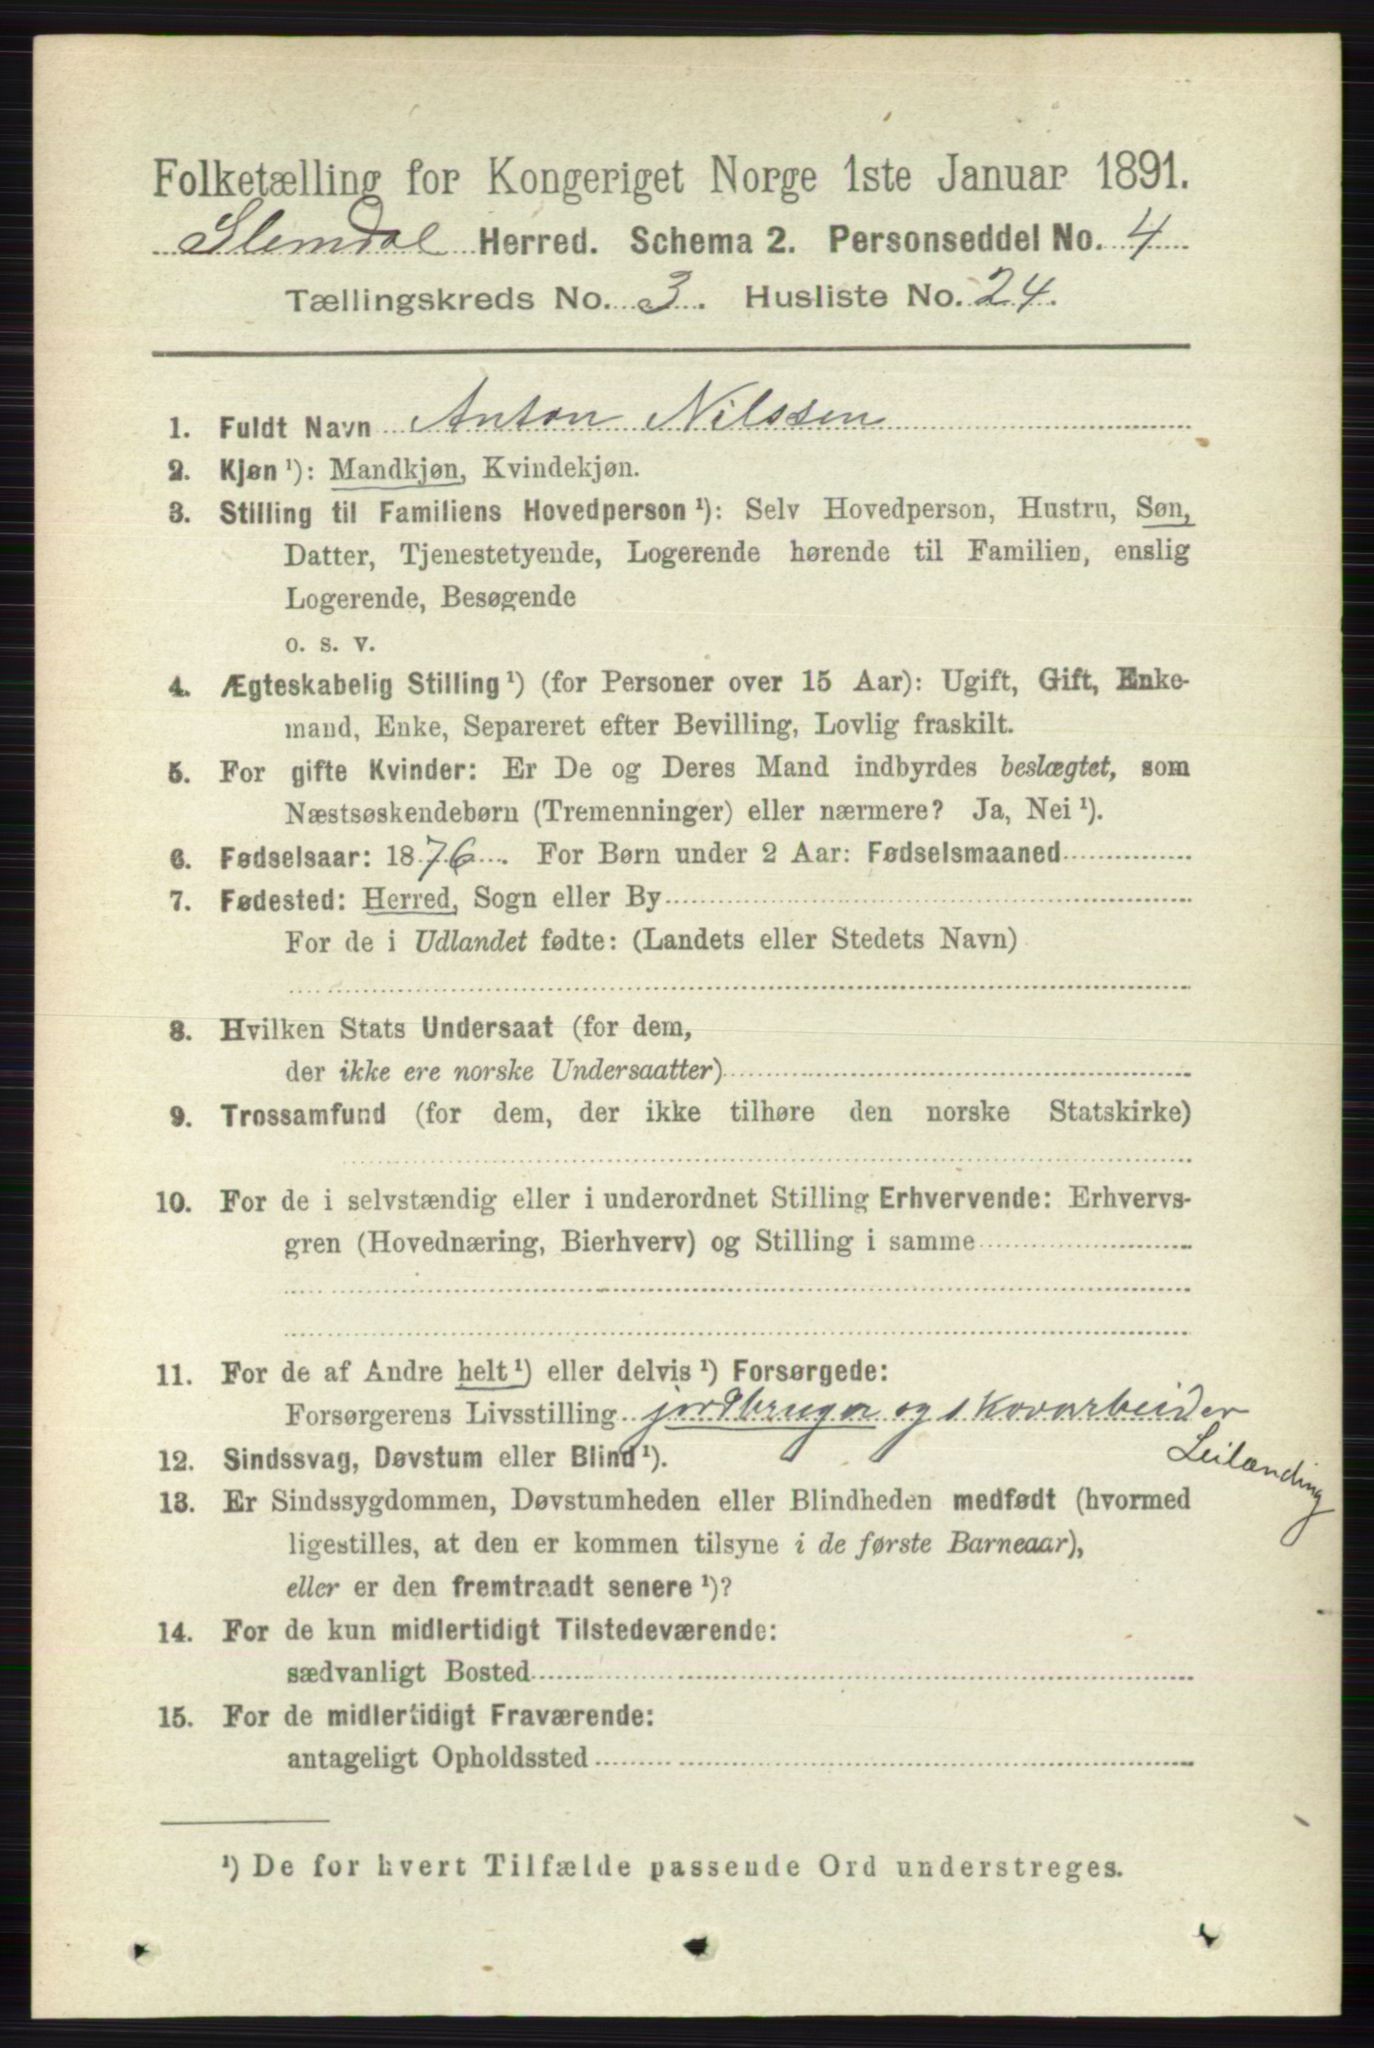 Folketælling for Kongeriget Norge 1ste Januar 1891.
Slemdal Herred. Schema 2. Personseddel No. 4
Tællingskreds No. 3. Husliste No. 24.
1. Fuldt Navn Anton Nilssen
2. Kjøn ¹): Mandkjøn, Kvindekjøn.
3. Stilling til Familiens Hovedperson ¹): Selv Hovedperson, Hustru, Søn,
Datter, Tjenestetyende, Logerende hørende til Familien, enslig
Logerende, Besøgende
o. s. v.
4. Ægteskabelig Stilling ¹) (for Personer over 15 Aar): Ugift, Gift, Enke-
mand, Enke, Separeret efter Bevilling, Lovlig fraskilt.
5. For gifte Kvinder: Er De og Deres Mand indbyrdes beslægtet, som
Næstsøskendebørn (Tremenninger) eller nærmere? Ja, Nei ¹).
6. Fødselsaar: 1876. For Børn under 2 Aar: Fødselsmaaned
7. Fødested: Herred, Sogn eller By
For de i Udlandet fødte: (Landets eller Stedets Navn)
8. Hvilken Stats Undersaat (for dem,
der ikke ere norske Undersaatter)
9. Trossamfund (for dem, der ikke tilhøre den norske Statskirke)
10. For de i selvstændig eller i underordnet Stilling Erhvervende: Erhvervs-
gren (Hovednæring, Bierhverv) og Stilling i samme
11. For de af Andre helt ¹) eller delvis ¹) Forsørgede:
Forsørgerens Livsstilling jordbruger og skovarbeider
Leilænding
12. Sindssvag, Døvstum eller Blind ¹).
13. Er Sindssygdommen, Døvstumheden eller Blindheden medfødt (hvormed
ligestilles, at den er kommen tilsyne i de første Barneaar),
eller er den fremtraadt senere ¹)?
14. For de kun midlertidigt Tilstedeværende:
sædvanligt Bosted
15. For de midlertidigt Fraværende:
antageligt Opholdssted
¹) De for hvert Tilfælde passende Ord understreges.